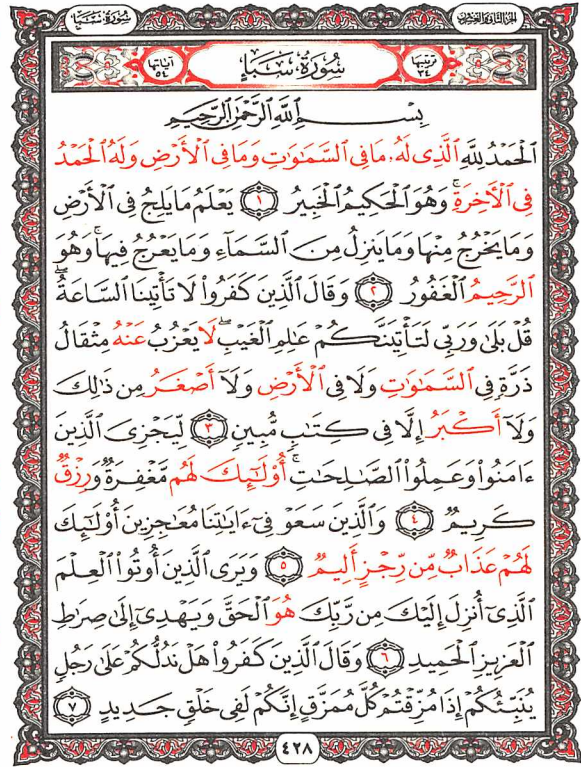 سُورَةُ سَبَإٍ
الجزء الثاني والعشرون
ترتيبها ٣٤
سُورَةُ سَبَإٍ
آياتها ٥٤
بِسْمِ ٱللَّهِ ٱلرَّحْمَٰنِ ٱلرَّحِيمِ
ٱلْحَمْدُ لِلَّهِ ٱلَّذِى لَهُۥ مَا فِى ٱلسَّمَٰوَٰتِ وَمَا فِى ٱلْأَرْضِ وَلَهُ ٱلْحَمْدُ
فِى ٱلْءَاخِرَةِ ۚ وَهُوَ ٱلْحَكِيمُ ٱلْخَبِيرُ ١ يَعْلَمُ مَا يَلِجُ فِى ٱلْأَرْضِ
وَمَا يَخْرُجُ مِنْهَا وَمَا يَنزِلُ مِنَ ٱلسَّمَآءِ وَمَا يَعْرُجُ فِيهَا ۚ وَهُوَ
ٱلرَّحِيمُ ٱلْغَفُورُ ٢ وَقَالَ ٱلَّذِينَ كَفَرُوا۟ لَا تَأْتِينَا ٱلسَّاعَةُ ۖ
قُلْ بَلَىٰ وَرَبِّى لَتَأْتِيَنَّكُمْ عَٰلِمِ ٱلْغَيْبِ ۖ لَا يَعْزُبُ عَنْهُ مِثْقَالُ
ذَرَّةٍ فِى ٱلسَّمَٰوَٰتِ وَلَا فِى ٱلْأَرْضِ وَلَآ أَصْغَرُ مِن ذَٰلِكَ
وَلَآ أَكْبَرُ إِلَّا فِى كِتَٰبٍ مُّبِينٍ ٣ لِّيَجْزِىَ ٱلَّذِينَ
ءَامَنُوا۟ وَعَمِلُوا۟ ٱلصَّٰلِحَٰتِ ۚ أُو۟لَٰٓئِكَ لَهُم مَّغْفِرَةٌ وَرِزْقٌ
كَرِيمٌ ٤ وَٱلَّذِينَ سَعَوْ فِىٓ ءَايَٰتِنَا مُعَٰجِزِينَ أُو۟لَٰٓئِكَ
لَهُمْ عَذَابٌ مِّن رِّجْزٍ أَلِيمٌ ٥ وَيَرَى ٱلَّذِينَ أُوتُوا۟ ٱلْعِلْمَ
ٱلَّذِىٓ أُنزِلَ إِلَيْكَ مِن رَّبِّكَ هُوَ ٱلْحَقَّ وَيَهْدِىٓ إِلَىٰ صِرَٰطِ
ٱلْعَزِيزِ ٱلْحَمِيدِ ٦ وَقَالَ ٱلَّذِينَ كَفَرُوا۟ هَلْ نَدُلُّكُمْ عَلَىٰ رَجُلٍ
يُنَبِّئُكُمْ إِذَا مُزِّقْتُمْ كُلَّ مُمَزَّقٍ إِنَّكُمْ لَفِى خَلْقٍ جَدِيدٍ ٧
٤٢٨